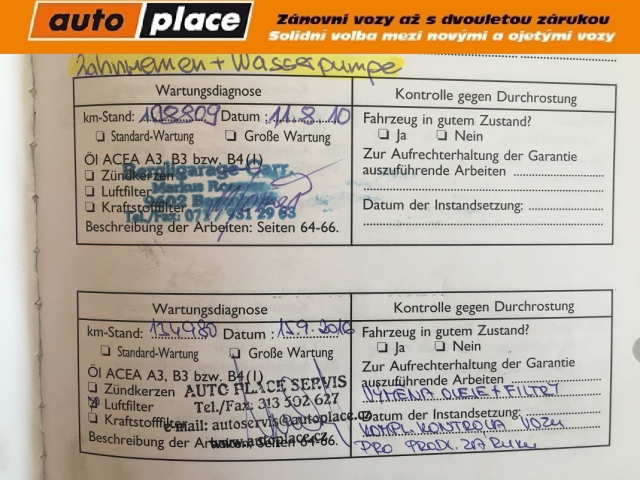 auto place
Zánovní vozy až s dvouletou zárukou
Solidní volba mezi novými a ojetými vozy
Zahnriemen + Wasserpumpe
Wartungsdiagnose
km-Stand: 108809 Datum: 11.8.10
Standard-Wartung Große Wartung
Öl ACEA A3, B3 bzw. B4(1)
Zündkerzen
Luftfilter
Kraftstofffilter
Markus
Tel./Fax:
Beschreibung der Arbeiten: Seiten 64-66.
Kontrolle gegen Durchrostung
Fahrzeug in gutem Zustand?
Ja Nein
Zur Aufrechterhaltung der Garantie
auszuführende Arbeiten
Datum der Instandsetzung:
Wartungsdiagnose
km-Stand: 134980 Datum: 15.9.2016
Standard-Wartung Große Wartung
Öl ACEA A3, B3 bzw. B4(1)
Zündkerzen
Luftfilter
Kraftstofffilter
AUTO PLACE SERVIS
Tel./Fax: 313 502 627
e-mail: autoservis@autoplace.cz
www.autoplace.cz
Beschreibung der Arbeiten: Seiten 64-66.
Kontrolle gegen Durchrostung
Fahrzeug in gutem Zustand?
Ja Nein
Zur Aufrechterhaltung der Garantie
auszuführende Arbeiten
VÝMĚNA OLEJE + FILTRY
Datum der Instandsetzung:
KOMPL. KONTROLA VOZU
PRO PRODL. ZÁRUKU